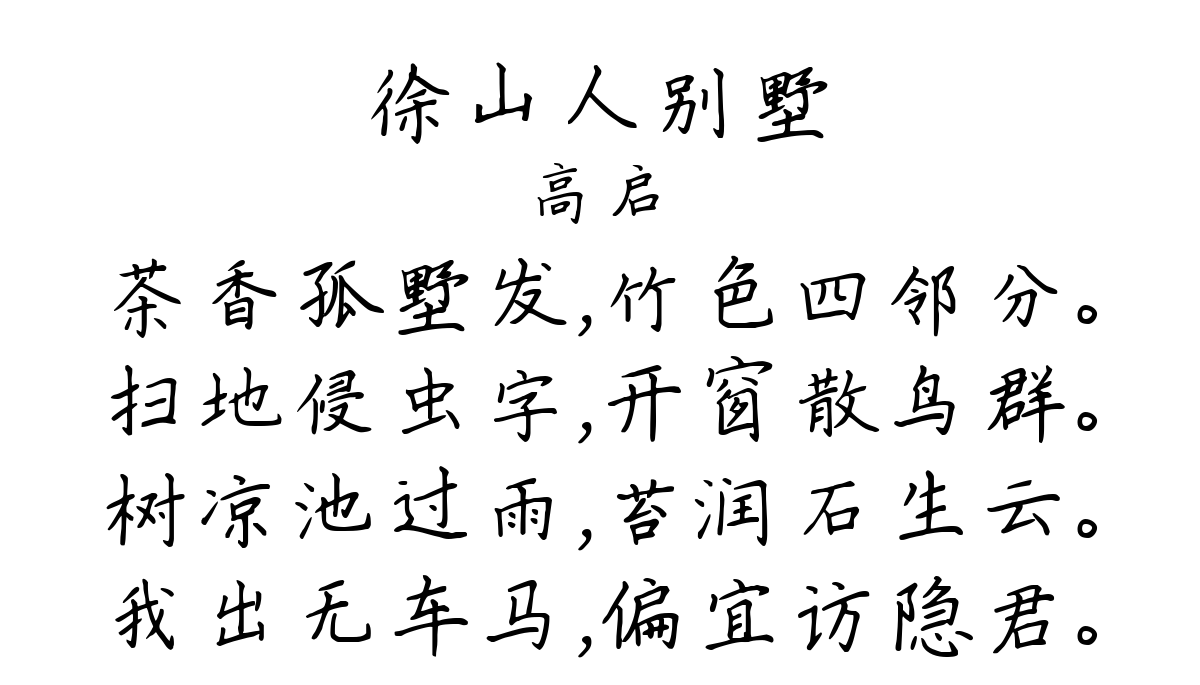 徐山人别墅
高启
茶香孤墅发,竹色四邻分。
扫地侵虫字,开窗散鸟群。
树凉池过雨,苔润石生云。
我出无车马,偏宜访隐君。